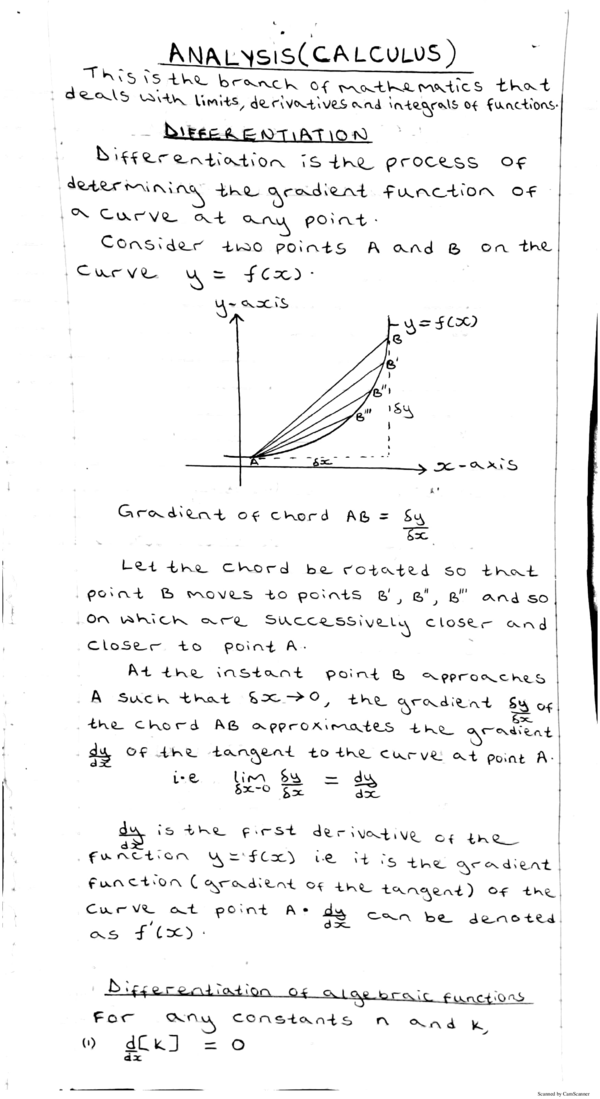 ANALYSIS(CALCULUS)
This is the branch of mathematics that
deals with limits, derivatives and integrals of functions.
DIFFERENTIATION
Differentiation is the process of
determining the gradient function of
a curve at any point.
Consider two points A and B on the
curve y = f(x).
y-axis
y=f(x)
B
B'
B''
B'''
δy
A
δx
x-axis
Gradient of chord AB = δy/δx
Let the chord be rotated so that
point B moves to points B', B'', B''' and so
on which are successively closer and
closer to point A.
At the instant point B approaches
A such that δx→0, the gradient δy/δx of
the chord AB approximates the gradient
dy/dx of the tangent to the curve at point A.
i.e lim δx→0 δy/δx = dy/dx
dy/dx is the first derivative of the
function y=f(x) i.e it is the gradient
function (gradient of the tangent) of the
curve at point A. dy/dx can be denoted
as f'(x).
Differentiation of algebraic functions
For any constants n and k,
(1) d/dx[k] = 0
Scanned by CamScanner